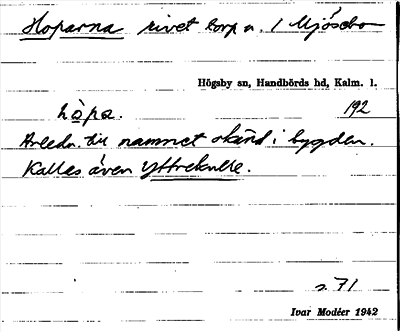 Hoparna rivet torp u. 1 Mjösebo
Högsby sn, Handbörds hd, Kalm. l.
hòpa. 192
Anledn. till namnet okänd i bygden.
Kallas även Yttrekulle.
s. 71
Ivar Modéer 1942